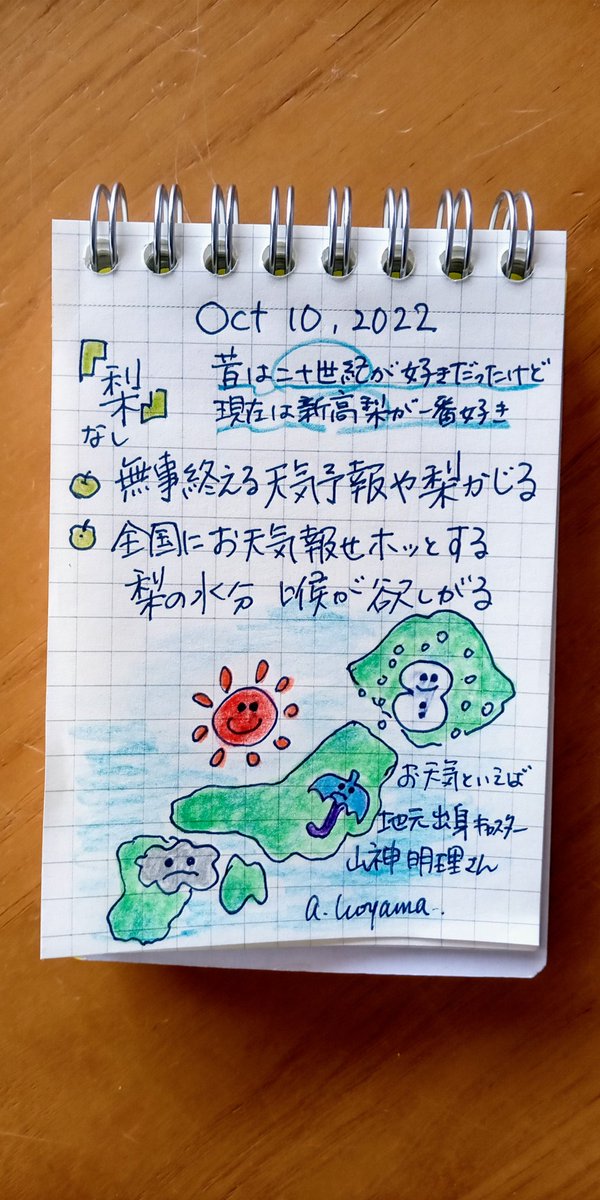 Oct 10, 2022
『梨』
なし
昔は二十世紀が好きだったけど
現在は新高梨が一番好き
無事終える天気予報や梨かじる
全国にお天気報せホッとする
梨の水分 喉が欲しがる
お天気といえば
地元出身キャスター
山神明理さん
a. Koyama.